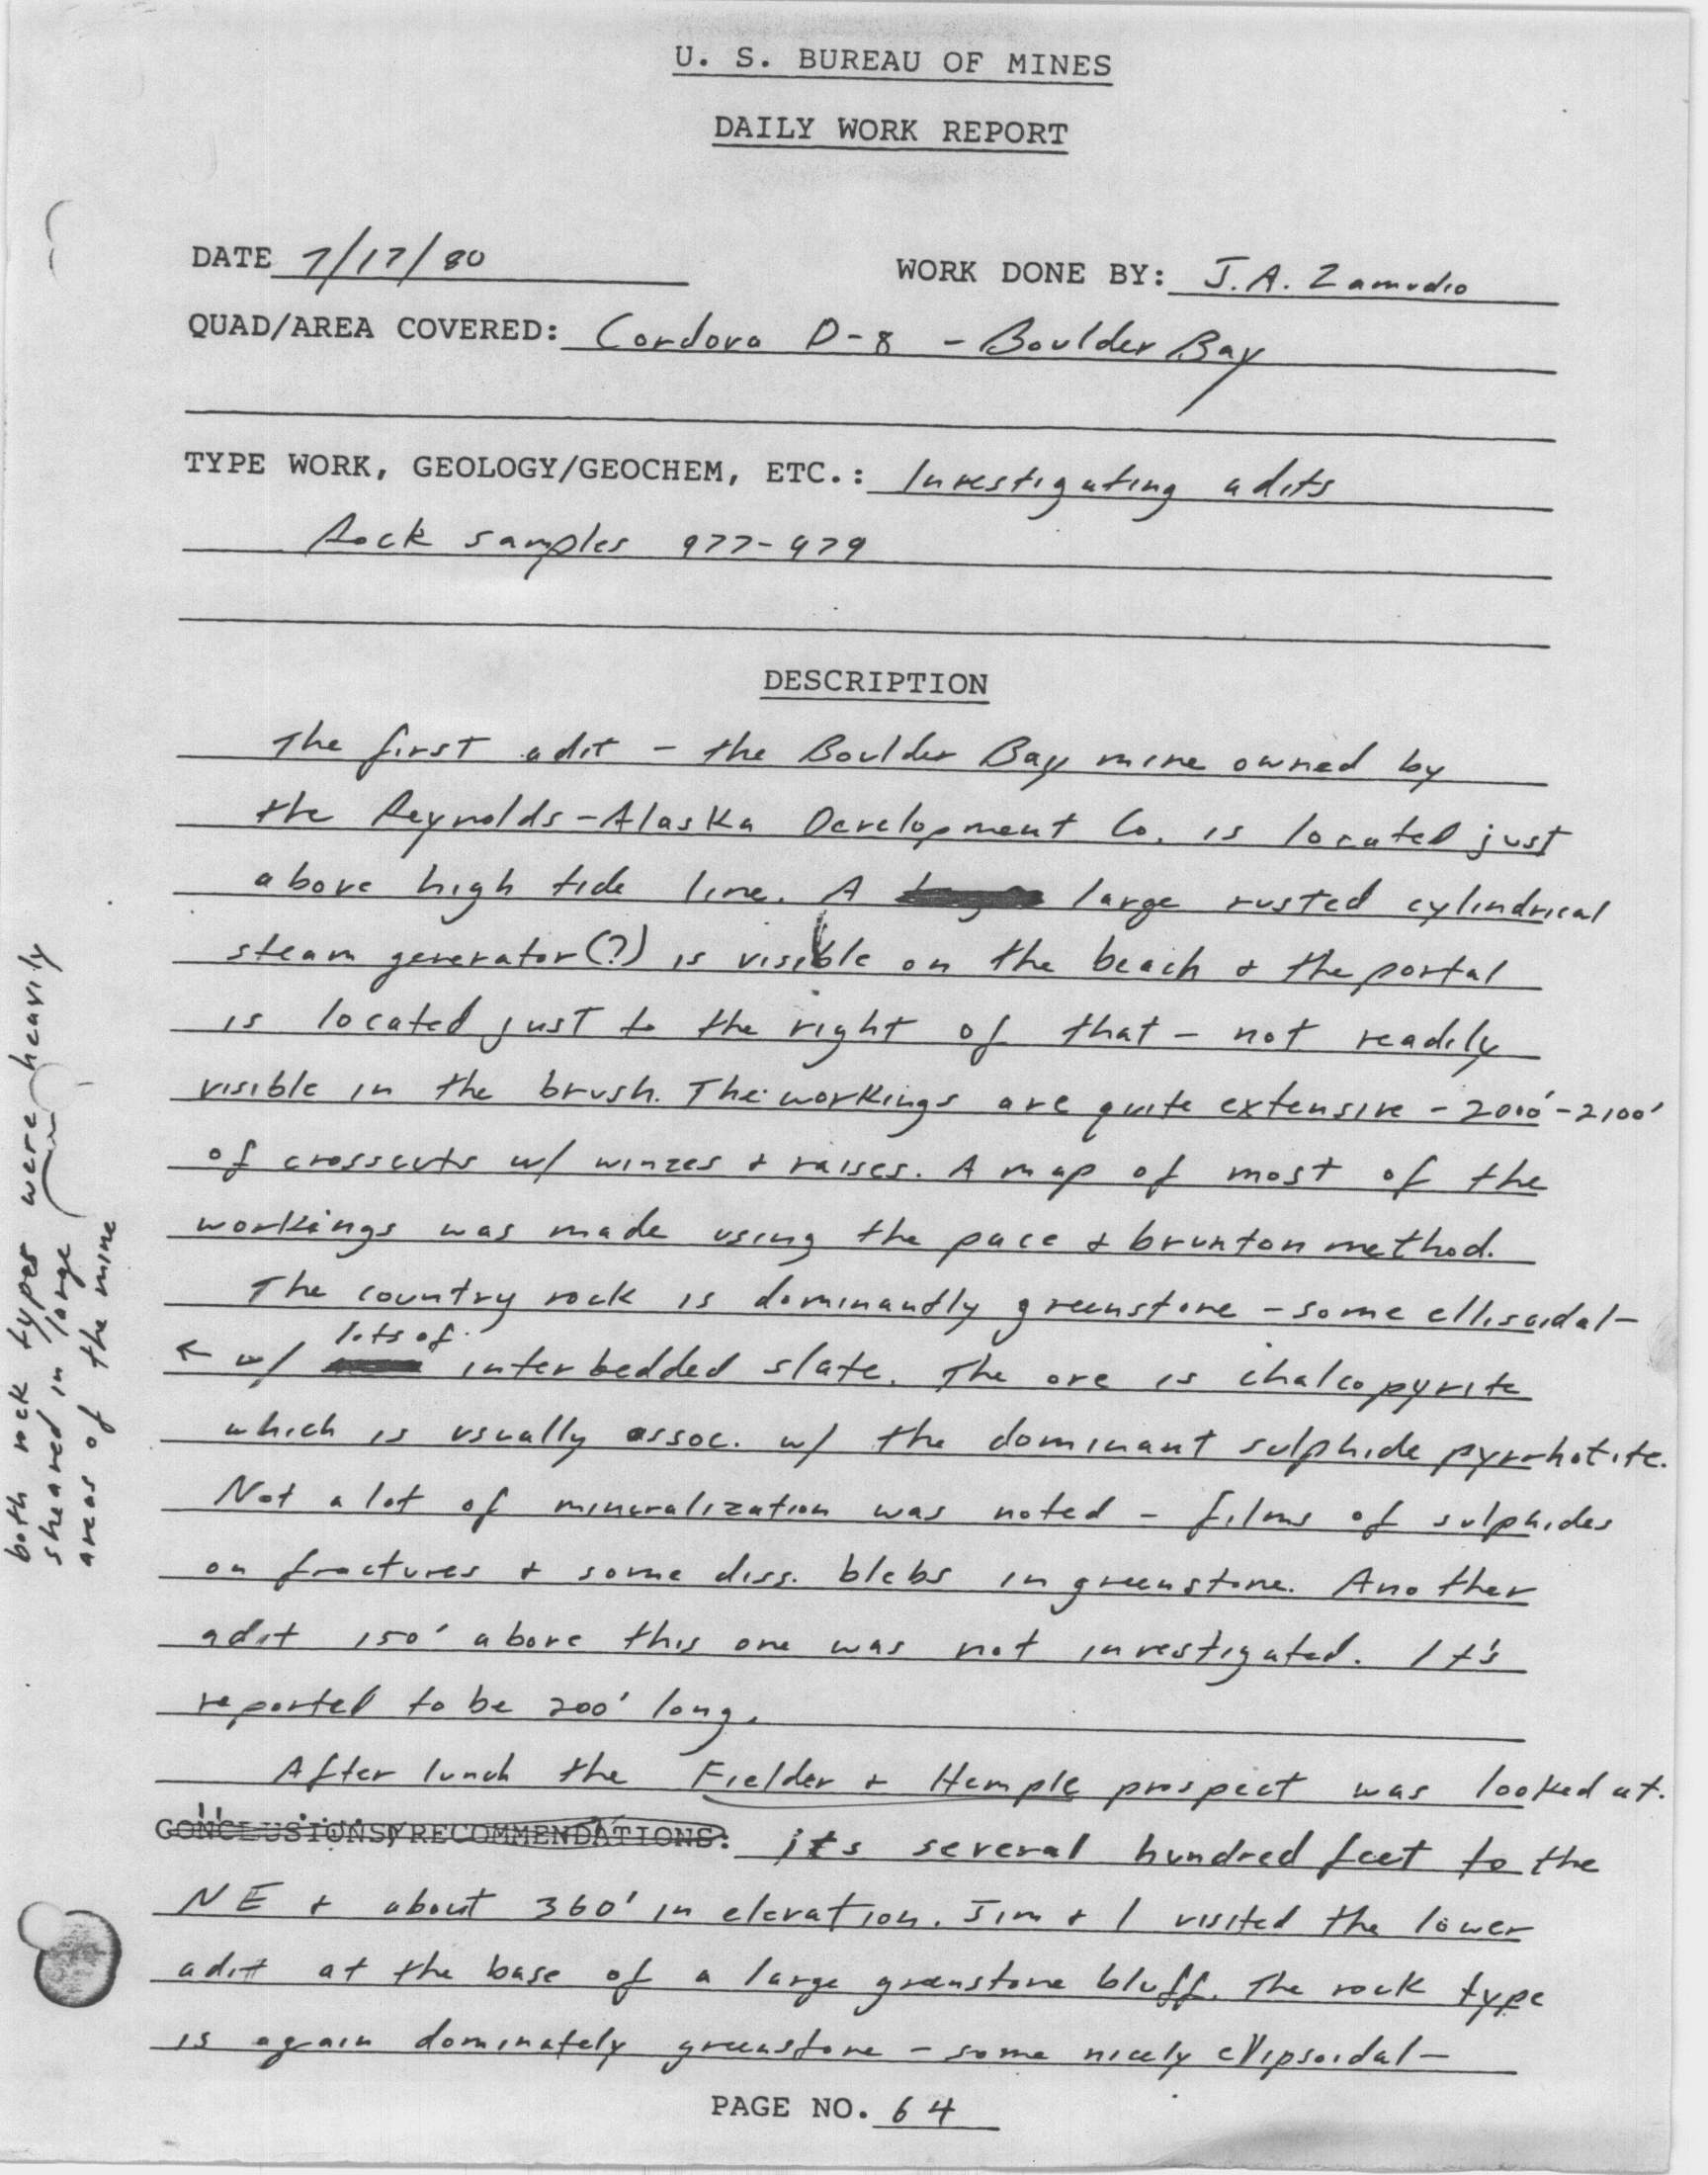 U. S. BUREAU OF MINES
DAILY WORK REPORT
DATE 7/17/80 WORK DONE BY: J.A. Zamudio
QUAD/AREA COVERED: Cordova D-8 - Boulder Bay
TYPE WORK, GEOLOGY/GEOCHEM, ETC.: Investigating adits
Rock samples 977-979
DESCRIPTION
The first adit - the Boulder Bay mine owned by
the Reynolds-Alaska Development Co. is located just
above high tide line. A large rusted cylindrical
steam generator(?) is visible on the beach & the portal
is located just to the right of that - not readily
visible in the brush. The workings are quite extensive - 2000'-2100'
of crosscuts w/ winzes & raises. A map of most of the
workings was made using the pace & brunton method.
The country rock is dominantly greenstone - some ellisoidal-
← w/ lots of interbedded slate. The ore is chalcopyrite
which is usually assoc. w/ the dominant sulphide pyrrhotite.
Not a lot of mineralization was noted - films of sulphides
on fractures & some diss. blebs in greenstone. Another
adit 150' above this one was not investigated. It's
reported to be 200' long.
After lunch the Fielder & Hemple prospect was looked at.
CONCLUSIONS/RECOMMENDATIONS: its several hundred feet to the
NE & about 360' in elevation. Jim & I visited the lower
adit at the base of a large greenstone bluff. The rock type
is again dominately greenstone - some nicely ellipsoidal-
PAGE NO. 64
both rock types were heavily
sheared in large
areas of the mine